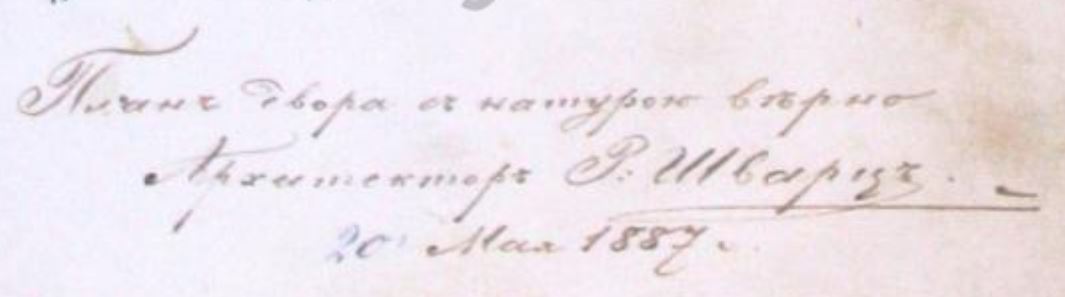 Планъ двора съ натурою вѣрно
Архитекторъ Р. Шварцъ.
20 Мая 1887 г.